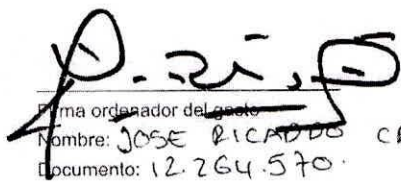 Firma ordenador del gasto
Nombre: JOSE RICARDO
Documento: 12.264.570.